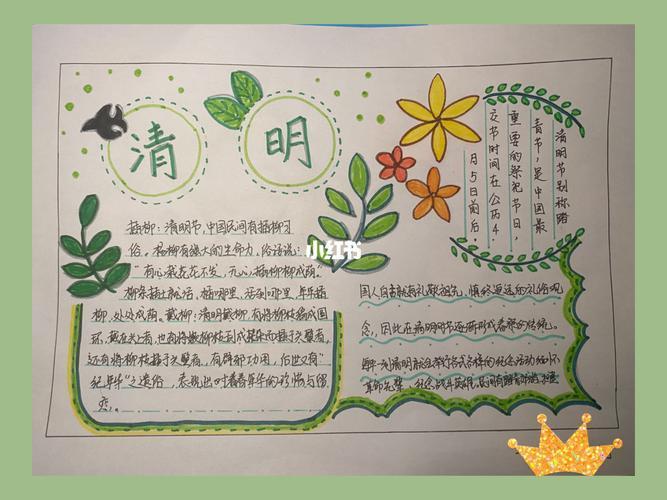 清明
插柳:清明节,中国民间有插柳习
俗。杨柳有强大的生命力,俗话说:
"有心栽花花不发,无心插柳柳成荫。"
柳条插土就活,插哪里,活到哪里,年年插
柳,处处成荫。戴柳:清明戴柳,有将柳枝编成圆
环,戴在头上者,也有将嫩柳枝
还有将柳枝插于头髻者,有辟邪功用,后世又有"
纪年华"之遗俗,表现出对青春年华的珍惜与留
恋。
小红书
清明节别称踏
青节,是中国最
重要的祭祀节日,
交节时间在公历4
月5日前后
国人自古就有礼敬祖先,慎终追远的礼俗观
念,因此在清明节逐渐形成
每年一到清明就会举行各式各样的纪念活动
革命先辈,纪念战斗英雄,民间有